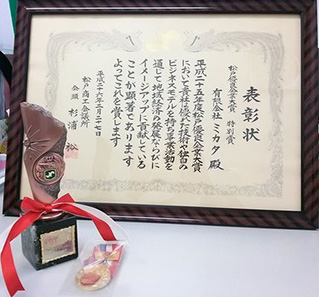 表彰状
松戸優良企業大賞 特別賞
有限会社 ミカク 殿
平成二十五年度松戸優良企業大賞
において貴社は優れた技術や独自の
ビジネスモデルを持ち事業活動を
通して地域経済の発展ならびに
イメージアップに貢献している
ことが顕著であります
よってこれを賞します
平成二十六年二月二十七日
松戸商工会議所
会頭 杉浦 裕